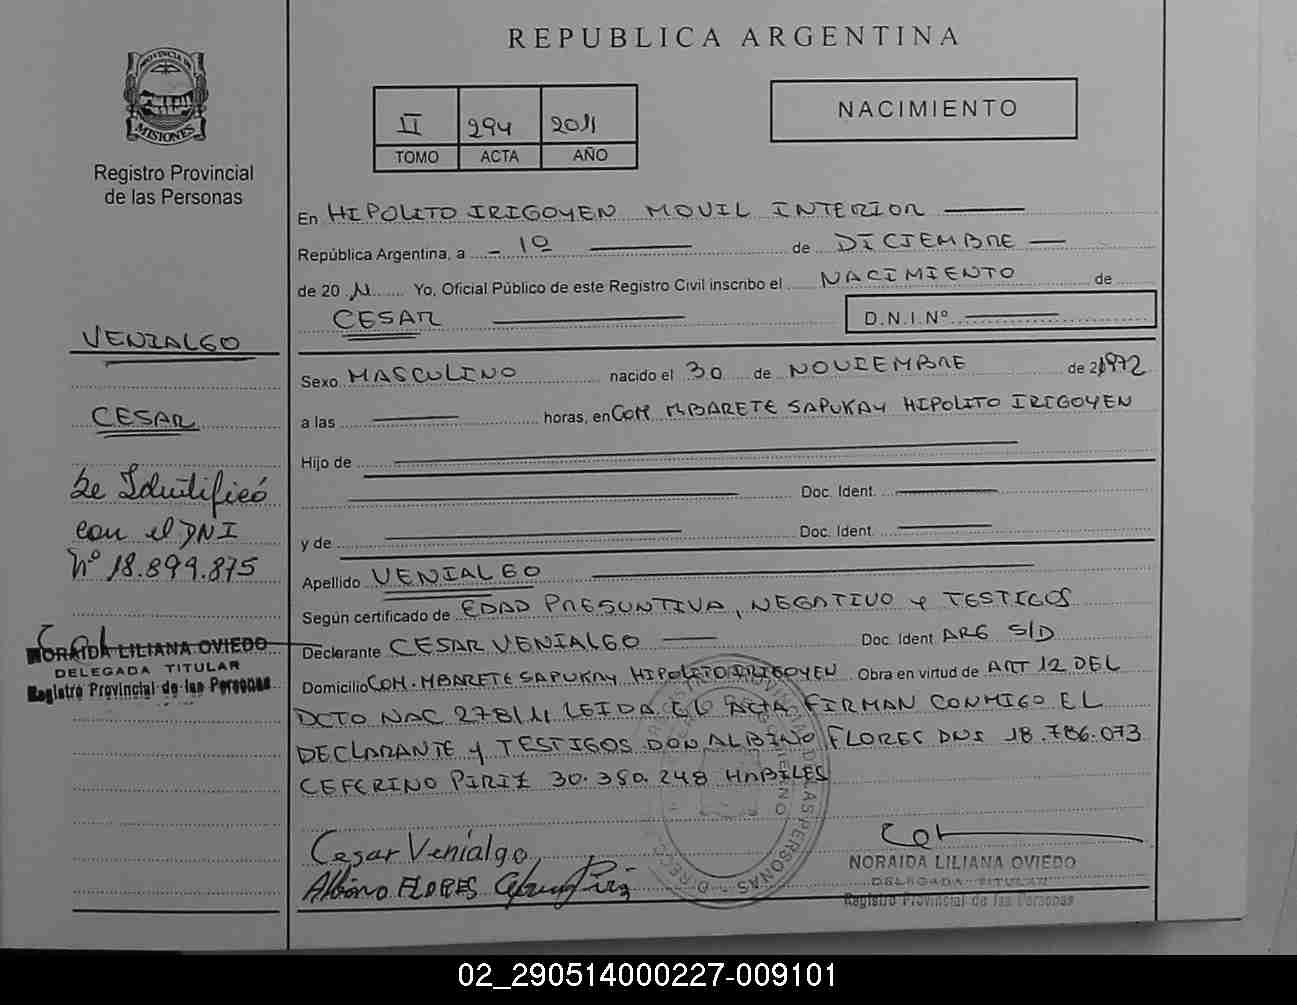 REPUBLICA ARGENTINA
PROVINCIA DE
MISIONES
Registro Provincial
de las Personas
II 294 2011
TOMO ACTA AÑO
NACIMIENTO
En HIPOLITO IRIGOYEN MOVIL INTERIOR
República Argentina, a 1º de DICIEMBRE
de 20 11 Yo, Oficial Público de este Registro Civil inscribo el NACIMIENTO de
CESAR D.N.I.Nº
Sexo MASCULINO nacido el 30 de NOVIEMBRE de 1972
a las horas, en COM. MBARETE SAPUKAY HIPOLITO IRIGOYEN
Hijo de
Doc. Ident.
y de Doc. Ident.
Apellido VENIALGO
Según certificado de EDAD PRESUNTIVA, NEGATIVO y TESTIGOS
Declarante CESAR VENIALGO Doc. Ident ARG S/D
Domicilio COM. MBARETE SAPUKAY HIPOLITO IRIGOYEN Obra en virtud de ART 12 DEL
DCTO NAC 278/11 LEIDA EL ACTA, FIRMAN CONMIGO EL
DECLARANTE y TESTIGOS DON ALBINO FLORES DNI 18.786.073
CEFERINO PIRIZ 30.380.248 HABILES
Cesar Venialgo
Albino FLORES
NORAIDA LILIANA OVIEDO
DELEGADA TITULAR
Registro Provincial de las Personas
VENIALGO
CESAR
Se Identificó
con el DNI
Nº 18.899.875
NORAIDA LILIANA OVIEDO
DELEGADA TITULAR
Registro Provincial de las Personas
02_290514000227-009101